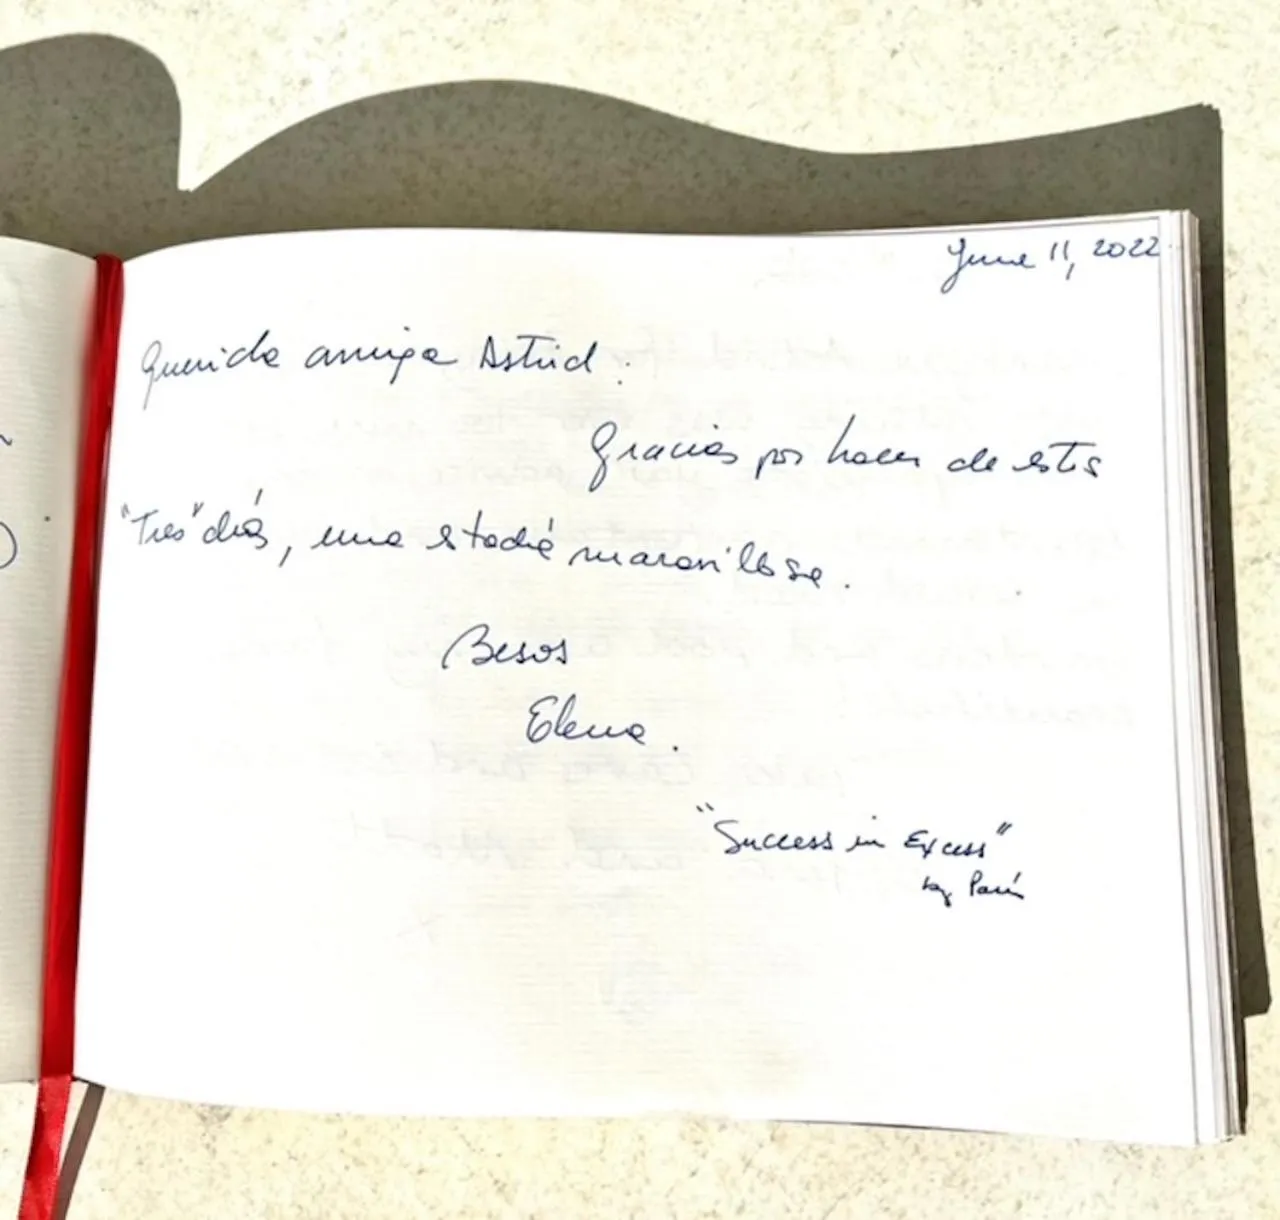 June 11, 2022
Querida amiga Astrid:
Gracias por hacer de estos
"Tres" días, una estadía maravillosa.
Besos
Elena.
"Success in Excess"
by